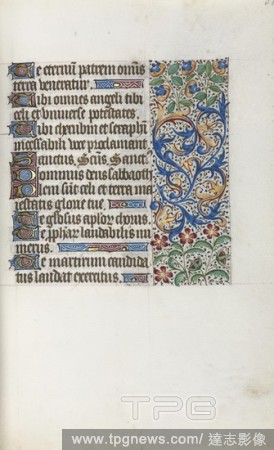 Te eternum patrem omnis
terra veneratur.
Tibi omnes angeli tibi
celi et universe potestates.
Tibi cherubin et seraphi
incessabili voce proclamant
Sanctus, Scūs, Sanct
Dominus deus sabbaoth
Pleni sūt celi et terra ma
iestatis glorie tue.
Te gl'osus aplor̄ chorus.
Te ꝓphar̄ laudabilis nu
merus.
Te martirum candida
tus laudat exercitus.
TPG
www.tpgnews.com/ 達志影像